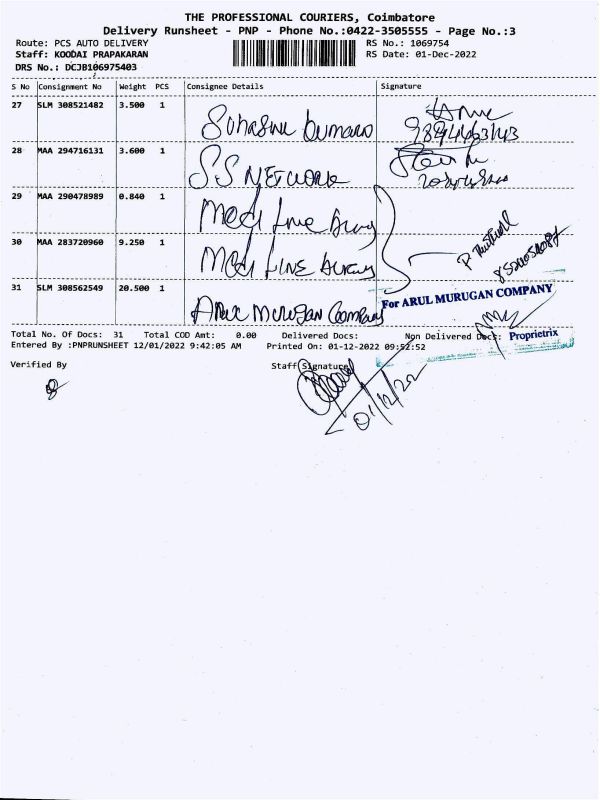 THE PROFESSIONAL COURIERS, Coimbatore
Delivery Runsheet - PNP - Phone No.:0422-3505555 - Page No.:3
Route: PCS AUTO DELIVERY
RS No.: 1069754
Staff: KOODAI PRAPAKARAN
RS Date: 01-Dec-2022
DRS No.: DCJB106975403
S No Consignment No Weight PCS Consignee Details Signature
27 SLM 308521482 3.500 1
28 MAA 294716131 3.600 1 SS NETWORK
29 MAA 290478989 0.840 1 Medi Line
30 MAA 283720960 9.250 1 Medi LINE
31 SLM 308562549 20.500 1 Arul Murugan Company
For ARUL MURUGAN COMPANY
Proprietrix
Total No. Of Docs: 31 Total COD Amt: 0.00 Delivered Docs: Non Delivered Docs:
Entered By :PNPRUNSHEET 12/01/2022 9:42:05 AM Printed On: 01-12-2022 09:52:52
Verified By Staff Signature
01/12/22